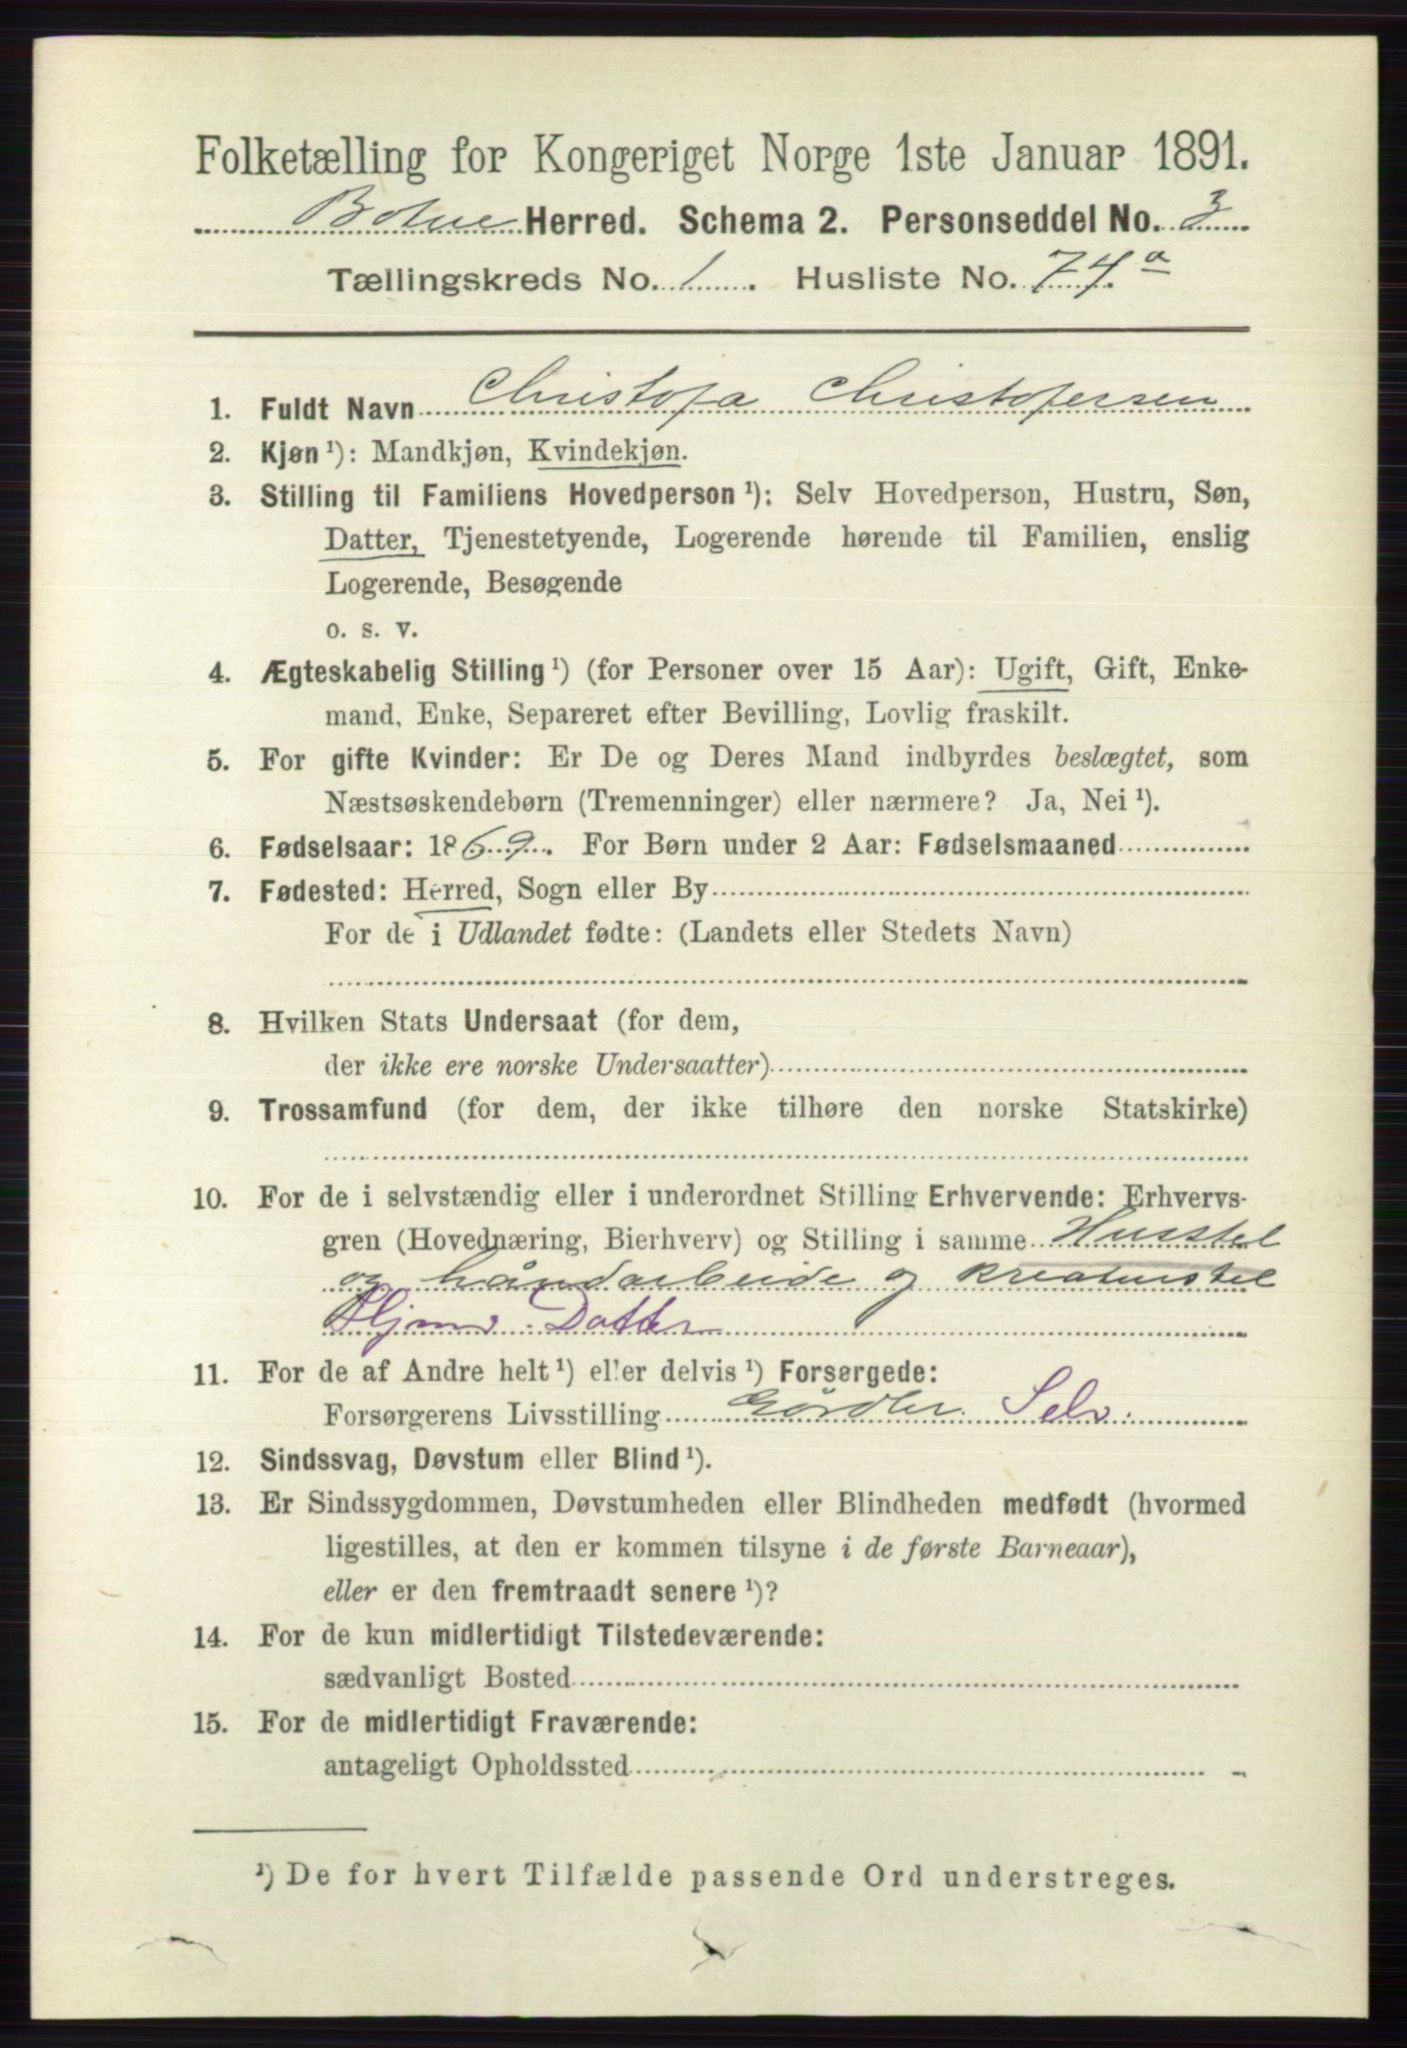 Folketælling for Kongeriget Norge 1ste Januar 1891.
Botne Herred. Schema 2. Personseddel No. 3
Tællingskreds No. 1. Husliste No. 74.a
1. Fuldt Navn Christofa Christofersen
2. Kjøn ¹): Mandkjøn, Kvindekjøn.
3. Stilling til Familiens Hovedperson ¹): Selv Hovedperson, Hustru, Søn,
Datter, Tjenestetyende, Logerende hørende til Familien, enslig
Logerende, Besøgende
o. s. v.
4. Ægteskabelig Stilling ¹) (for Personer over 15 Aar): Ugift, Gift, Enke-
mand, Enke, Separeret efter Bevilling, Lovlig fraskilt.
5. For gifte Kvinder: Er De og Deres Mand indbyrdes beslægtet, som
Næstsøskendebørn (Tremenninger) eller nærmere? Ja, Nei ¹).
6. Fødselsaar: 1869. For Børn under 2 Aar: Fødselsmaaned
7. Fødested: Herred, Sogn eller By
For de i Udlandet fødte: (Landets eller Stedets Navn)
8. Hvilken Stats Undersaat (for dem,
der ikke ere norske Undersaatter)
9. Trossamfund (for dem, der ikke tilhøre den norske Statskirke)
10. For de i selvstændig eller i underordnet Stilling Erhvervende: Erhvervs-
gren (Hovednæring, Bierhverv) og Stilling i samme Husstel
og håndarbeide og Kreaturstel
Hjmv. Datter
11. For de af Andre helt ¹) eller delvis ¹) Forsørgede:
Forsørgerens Livsstilling Selv.
12. Sindssvag, Døvstum eller Blind ¹).
13. Er Sindssygdommen, Døvstumheden eller Blindheden medfødt (hvormed
ligestilles, at den er kommen tilsyne i de første Barneaar),
eller er den fremtraadt senere ¹)?
14. For de kun midlertidigt Tilstedeværende:
sædvanligt Bosted
15. For de midlertidigt Fraværende:
antageligt Opholdssted
¹) De for hvert Tilfælde passende Ord understreges.